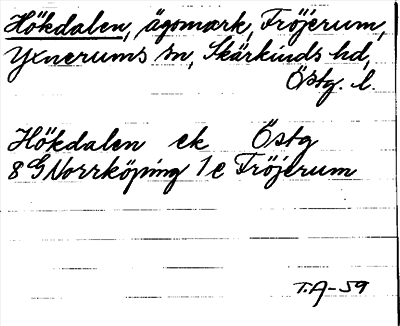 Hökdalen, ägomark, Fröjerum,
Yxnerums sn, Skärkinds hd,
Östg. l.
Hökdalen ek Östg
8 G Norrköping 1 e Fröjerum
T.A-59